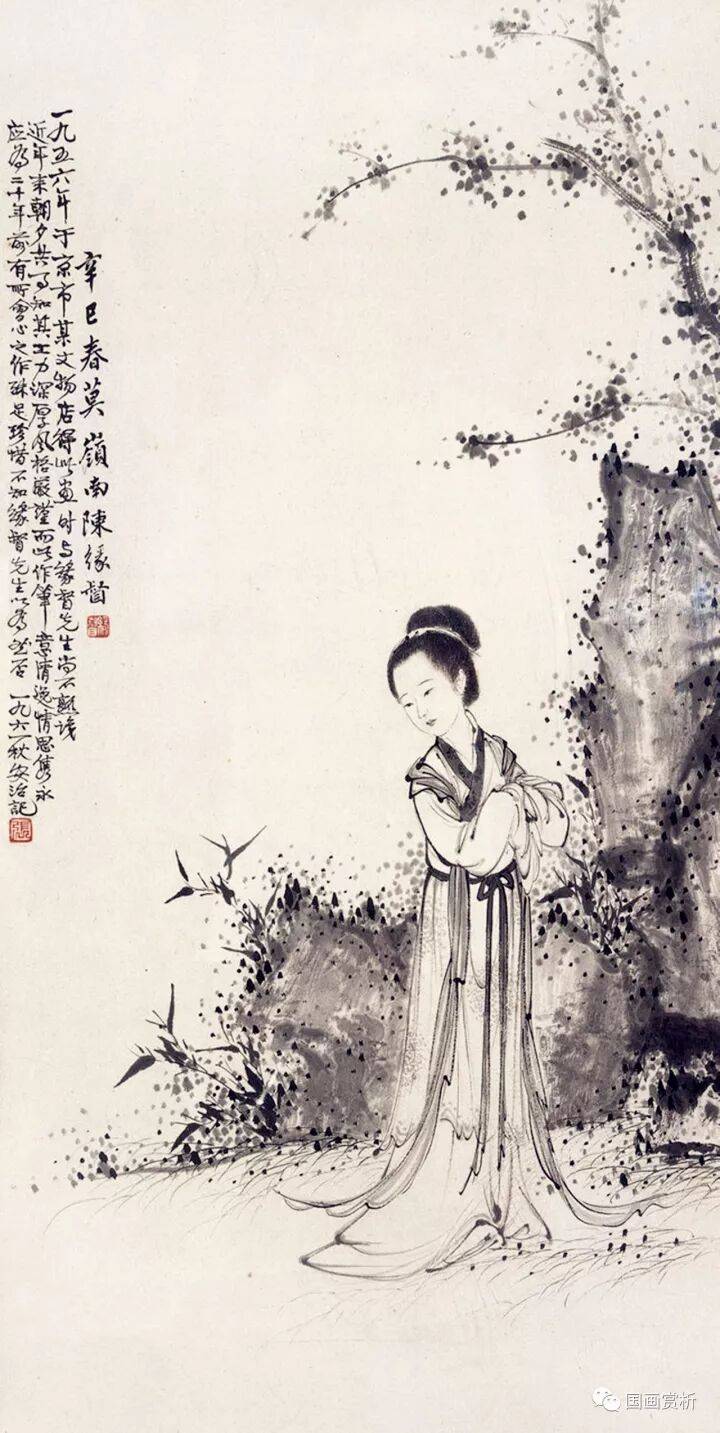 辛巳春莫嶺南陳緣督
一九五六年于京市某文物店得此画时与緣督先生尚不熟识
近年来朝夕共事知其工力深厚风格严谨而此作筆意清逸情思隽永
应为二十年前有所會心之作殊足珍惜不知緣督先生以为然否 一九六一秋安治記
国画赏析